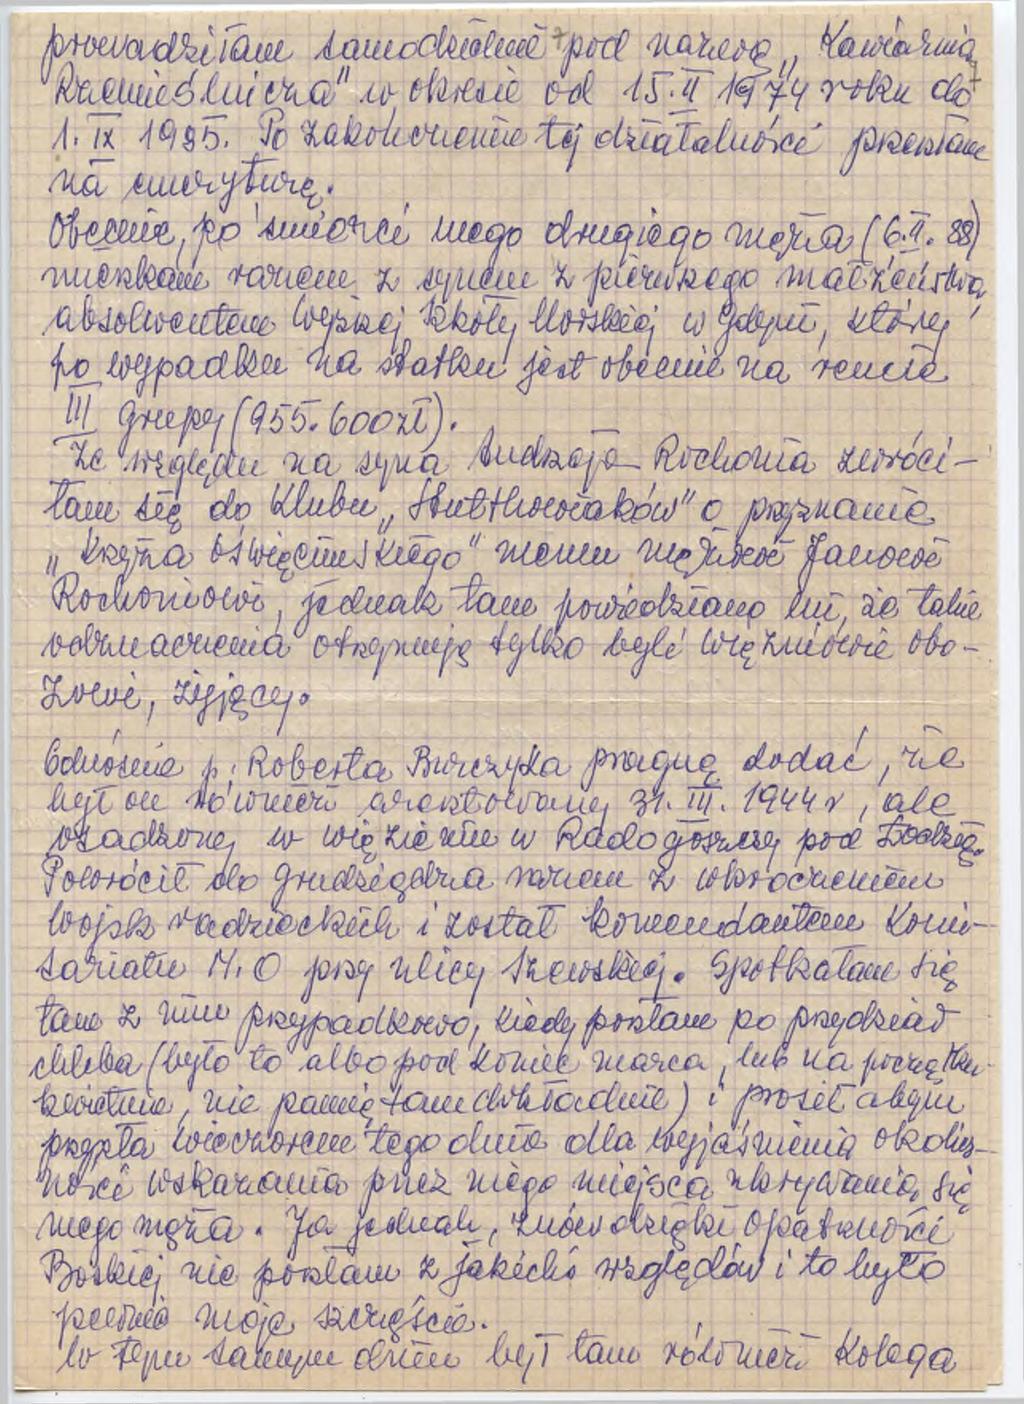 prowadziłam samodzielnie pod nazwą „Kawiarnia
Rzemieślnicza” w okresie od 15.II 1974 roku do
1. IX 1985. Po zakończeniu tej działalności przeszłam
na emeryturę.
Obecnie, po śmierci mego drugiego męża (6.II. 88)
mieszkam razem z synem z pierwszego małżeństwa,
absolwentem Wyższej Szkoły Morskiej w Gdyni, który
po wypadku na statku jest obecnie na rencie
III grupy (955.600 zł).
Ze względu na syna Andrzeja Rochonia zwróci-
łam się do Klubu „Stutthowiaków” o przyznanie
„Krzyża Oświęcimskiego” memu mężowi Janowi
Rochoniowi, jednak tam powiedziano mi, że takie
odznaczenia otrzymują tylko byli więźniowie obo-
zowi, żyjący.
Odnośnie p. Roberta Burczyka pragnę dodać, że
był on również aresztowany 31. III. 1944 r, ale
osadzony w więzieniu w Radogoszczy pod Łodzią.
Powrócił do Grudziądza razem z wkroczeniem
wojsk radzieckich i został komendantem Komi-
sariatu M.O przy ulicy Szewskiej. Spotkałam się
tam z nim przypadkowo, kiedy poszłam po przydział
chleba (było to albo pod koniec marca, lub na początku
kwietnia, nie pamiętam dokładnie) i prosił abym
przyszła wieczorem tego dnia dla wyjaśnienia okolicz-
ności wskazania przez niego miejsca ukrywania się
mego męża. Ja jednak, znów dzięki Opatrzności
Boskiej nie poszłam z jakichś względów i to było
pewnie moje szczęście.
W tym samym dniu był tam również Kolega